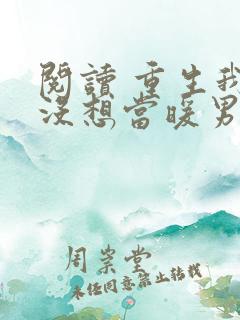 閱讀 重生我
沒想當暖男
周崇堂
未經同意禁止轉載